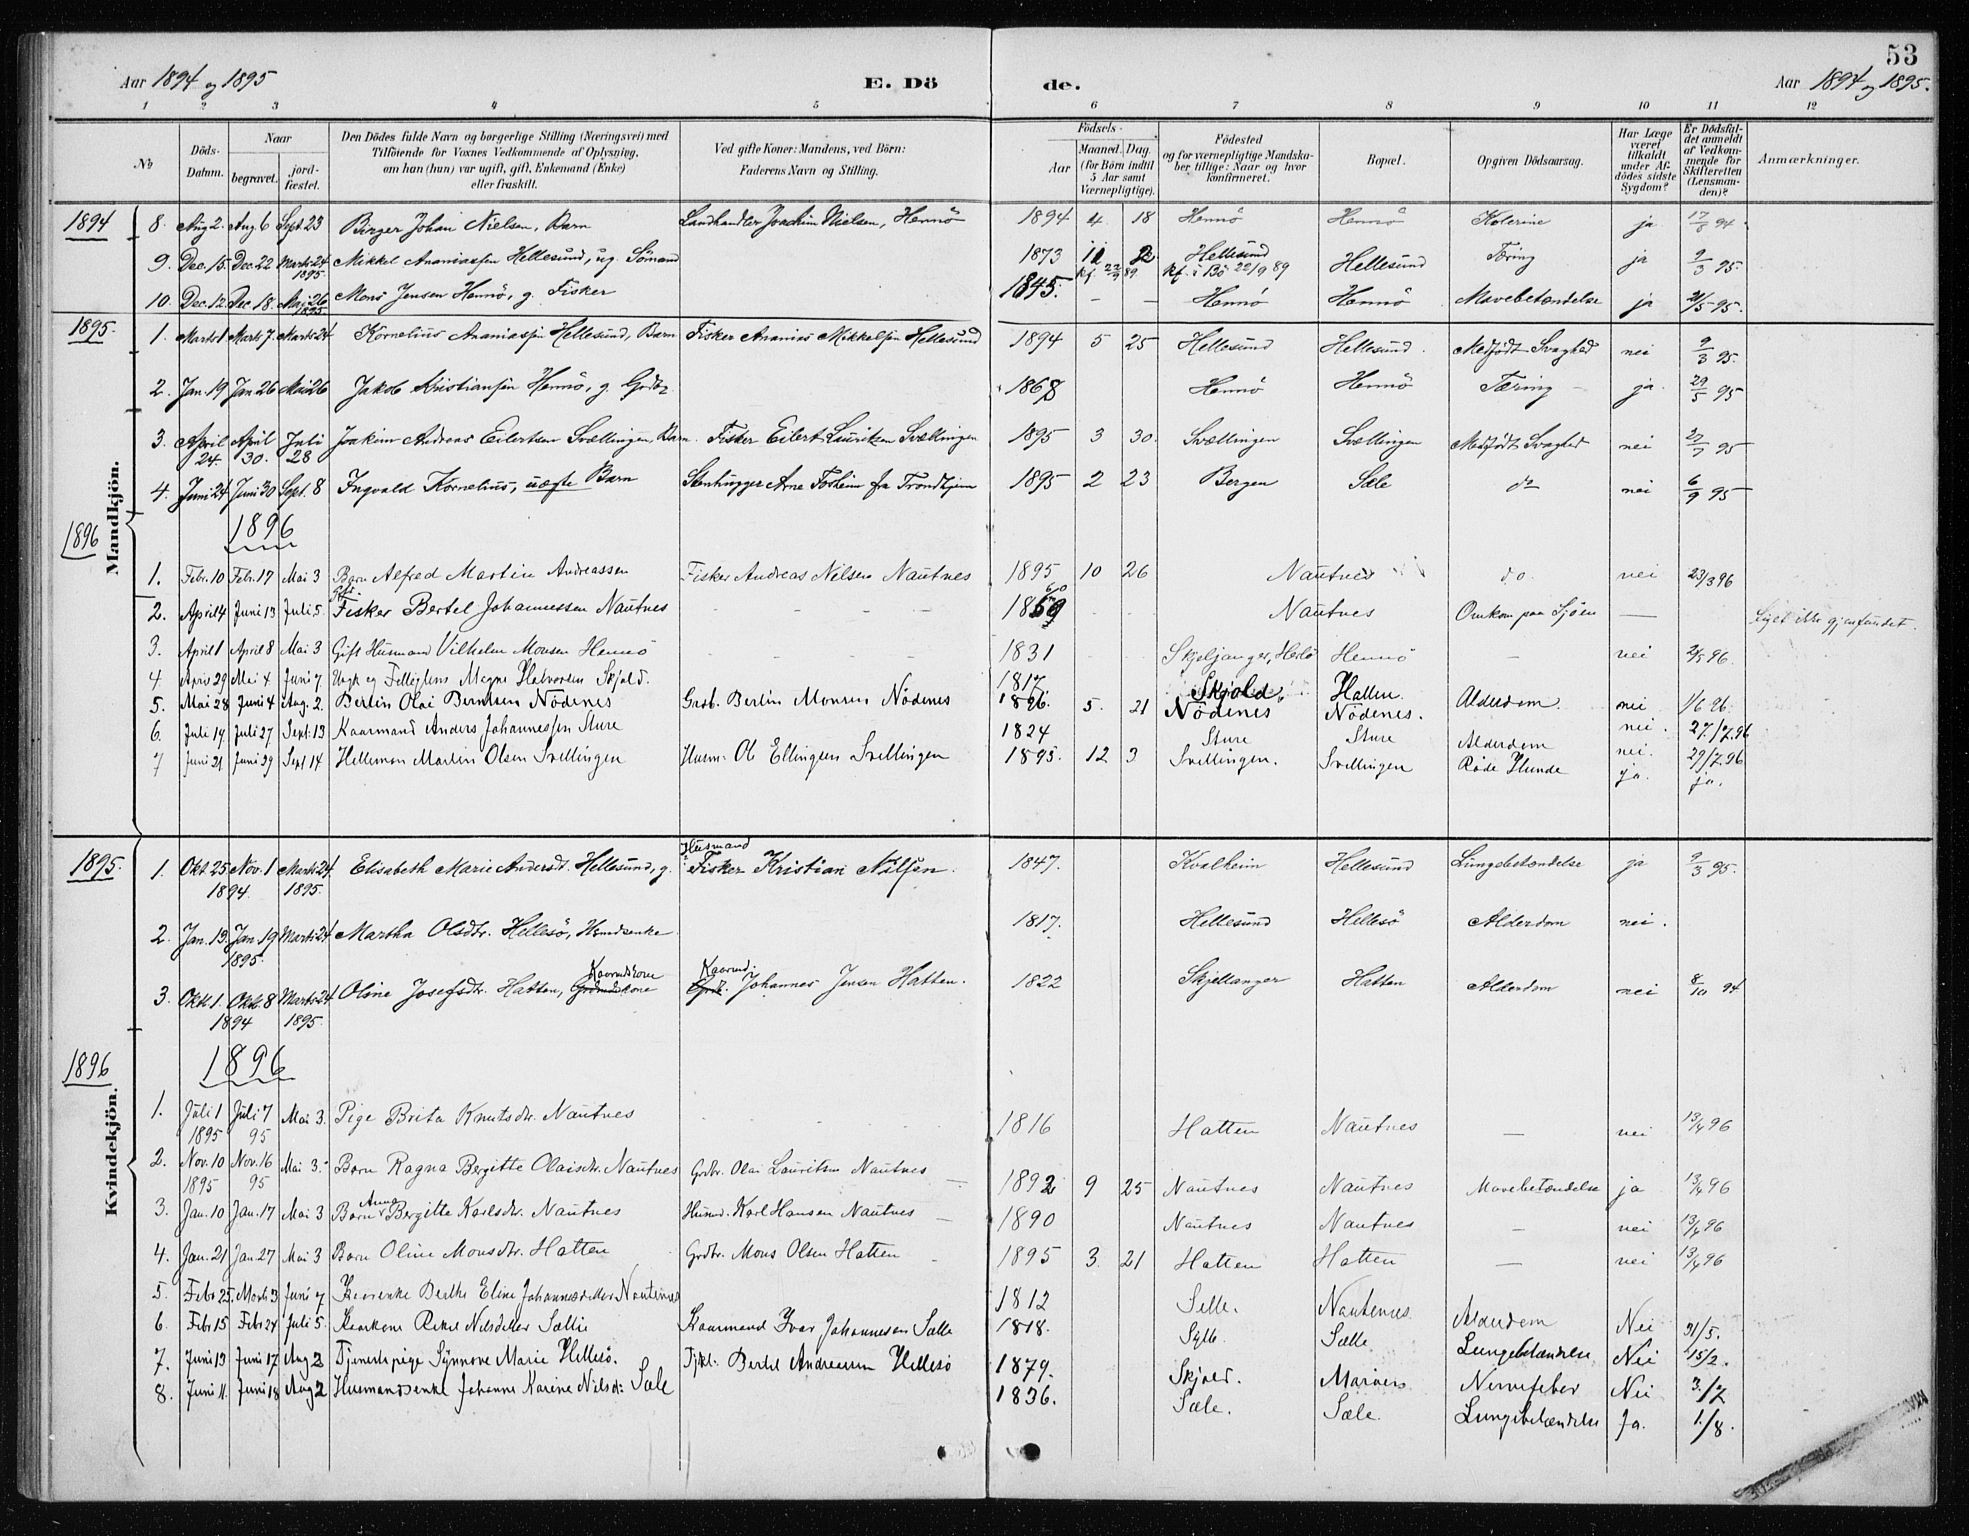 53
Aar 1894 og 1895 E. Dö de. Aar 1894 og 1895.
1 2 3 4 5 6 7 8 9 10 11 12
No
Döds-Datum.
Naar
begravet.
jord-fæstet.
Den Dödes fulde Navn og borgerlige Stilling (Næringsvei) med
Tilföiende for Voxnes Vedkommende af Oplysning,
om han (hun) var ugift, gift, Enkemand (Enke)
eller fraskilt.
Ved gifte Koner: Mandens, ved Börn:
Faderens Navn og Stilling.
Födsels-
Aar
Maaned. Dag.
(for Börn indtil
5 Aar samt
Værnepligtige).
Födested
og for værnepligtige Mandska-
ber tillige: Naar og hvor
konfirmeret.
Bopæl.
Opgiven Dödsaarsag.
Har Læge
været
tilkaldt
under Af-
dödes sidste
Sygdom?
Er Dödsfal-
det anmeldt
af Vedkom-
mende for
Skifteretten
(Lensman-
den)?
Anmærkninger.
Mandkjön.
1894 8. Aug 2. Aug 6 Sept. 23 Birger Johan Nielsen, Barn Landhandler Joachim Nielsen, Hennö 1894 4. 18 Hennö Hennö Kolerine ja 17/8 94.
9. Dec. 15. Dec. 22 Marts 24 1895 Mikkel Ananiassen Hellesund, ug. Sömand 1873 11 2 Hellesund Hellesund Tæring ja 9/3 95.
kf. i Bö 22/9 89
10. Dec. 12. Dec. 18. Mai 26 1895 Mons Jensen Hennö, g. Fisker 1845. – – Hennö Hennö Mavebetændelse ja 21/5 95.
1895. 1. Marts 1 Marts 7. Marts 24 Kornelius Ananiassen Hellesund, Barn Fisker Ananias Mikkelsen Hellesund 1894 5 25 Hellesund Hellesund. Medfødt Svaghed nei 9/3 95.
2. Jan. 19 Jan 26 Mai 26 Jakob Kristiansen Hennö, g. 1868 Hennö Hennö Tæring ja 29/5 95
3. April 24. April 30. Juli 28 Joakim Andreas Eilertsen Svællingen, Barn. Fisker Eilert Lauritsen Svællingen 1895 3 30. Svællingen Svællingen Medfødt Svaghed nei 27/7 95
4. Juni 24 Juni 30 Sept. 8 Ingvald Kornelius, uægte Barn Stenhugger Arne Forheim fra Trondhjem 1895 2 23 Bergen Sæle do nei 6/9 95
1896 1896
1. Febr. 10 Febr. 17 Mai 3 Barn Alfred Martin Andreassen Fisker Andreas Nilsen Nautnes 1895 10 26 Nautnes do. nei 23/3 96
2. April 4 Juni 13 Juli 5. Gift. Fisker Bertel Johannessen Nautnes Nautnes Omkom paa Sjöen — Liget ikke gjenfundet.
3. April 1 April 8 Mai 3 Gift Husmand Vilhelm Monsen Hennö 1831 Skjeljanger, Herlö Hennö — nei 2/5 96.
4 April 29 Mai 4 Juni 7 Magne Halvorsen Skjold. 1817 Skjold Hatten. Alderdom. nei 1/6 96.
5. Mai 28 Juni 4 Aug. 2. Bertin Olai Berntsen Nödenes Grdb. Bertin Monsen Nödenes 1896. 5. 21 Nödenes Nödenes. nei. 27/7.96
6. Juli 19 Juli 27 Sept. 13 Kaarmand Anders Johannessen Sture 1824 Sture Sture Alderdom nei. 29/7.96
7 Juni 21 Juni 29 Sept 14 Martin Olsen Svellingen Husm. Ol Ellingsen Svellingen 1895. 12 3 Svellingen. Svellingen Röde Hunde ja. ja.
Kvindekjön.
1895. 1. Okt. 25. Nov. 1 1894 Marts 24 1895. Elisabeth Marie Andersdt. Hellesund, g. Husmand Fisker Kristian Nilsen. 1847. Kvalheim Hellesund Lungebetændelse ja 9/3 95.
2. Jan. 13. Jan 19 1895. Marts 24 Martha Olsdtr. Hellesö, Hsmdsenke 1817. Hellesund Hellesö Alderdom nei.
3. Okt. 1. Okt. 8 1894 Marts 24 1895. Oline Josefsdtr. Hatten, Kaarmdskone Kaarmd. Johannes Jensen Hatten. 1822 Skjellanger Hatten Alderdom nei 8/10 94
1896 1896
1. Juli 1 1895 Juli 7 95 Mai 3. Pige Brita Knutsdtr. Nautnes 1816 Hatten Nautnes — nei 13/4 96
2. Nov. 10 1895 Nov. 16 95 Mai 3. Barn Ragna Bergitte Olaisdtr. Nautnes Grdbr. Olai Lauritsen Nautnes 1892 9 25 Nautnes Nautnes Mavebetændelse ja 13/4 96
3. Jan. 10 Jan. 17 Mai 3 Barn Anna Bergitte Karlsdtr. Nautnes Husmd. Karl Hansen Nautnes 1890 Nautnes Nautnes — nei 13/4 96
4. Jan. 21 Jan. 27 Mai 3 Barn Oline Monsdtr. Hatten Grdbr. Mons Olsen Hatten 1895 3. 21 Hatten Hatten — nei 13/4 96
5. Febr. 25. Marts 3 Juni 7 Kaarenke Berthe Eline Johannesdatter Nautenes 1812 Selle. Nautenes Alderdom Nei 31/5.
6. Febr 15 Febr 24 Juli 5. Kaarkone Nilsdatter Sælle Kaarmand Ivar Johannesen Sælle 1818. Sælle Lungebetændelse Nei 15/2.
7. Juni 13 Juni 17 Aug 2 Tjenestepige Synnove Marie Hellesö. Bertel Andreassen Hellesö 1879. Skjold. Nervefeber Nei 3./7
8. Juni 11. Juni 18 Aug 2 Husmandsenke Johanne Karine Nilsd: Sæle 1836. Sæle. Sæle. Lungebetændelse Ja. 1./8.